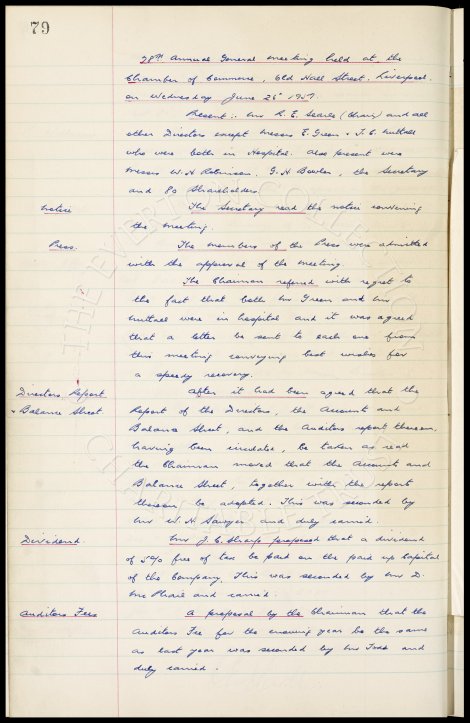 79
78th Annual General meeting held at the
Chamber of Commerce, Old Hall Street, Liverpool.
on Wednesday June 26th 1957.
Present:- Mr R. E. Searle (Chair) and all
other Directors except Messrs E. Green & T. C. Nuttall
who were both in Hospital. Also present were
Messrs W. H. Robinson, G. H. Bowler, the Secretary
and 80 Shareholders.
Notice
The Secretary read the notice convening
the meeting.
Press.
The members of the Press were admitted
with the approval of the meeting.
The Chairman referred with regret to
the fact that both Mr Green and Mr
Nuttall were in hospital and it was agreed
that a letter be sent to each one from
this meeting conveying best wishes for
a speedy recovery.
Directors Report
& Balance Sheet
After it had been agreed that the
Report of the Directors, the Account and
Balance Sheet, and the Auditors report thereon,
having been circulated, be taken as read
the Chairman moved that the Accounts and
Balance Sheet, together with the report
thereon, be adopted. This was seconded by
Mr W. H. Sawyer and duly carried.
Dividend
Mr J. C. Sharp proposed that a dividend
of 5% free of tax be paid on the paid up Capital
of the Company. This was seconded by Mr D.
McPhail and carried.
Auditors Fees
A proposal by the Chairman that the
Auditors Fee for the ensuing year be the same
as last year was seconded by Mr Todd and
duly carried.
THE EVERTON COLLECTION
CHARITABLE TRUST